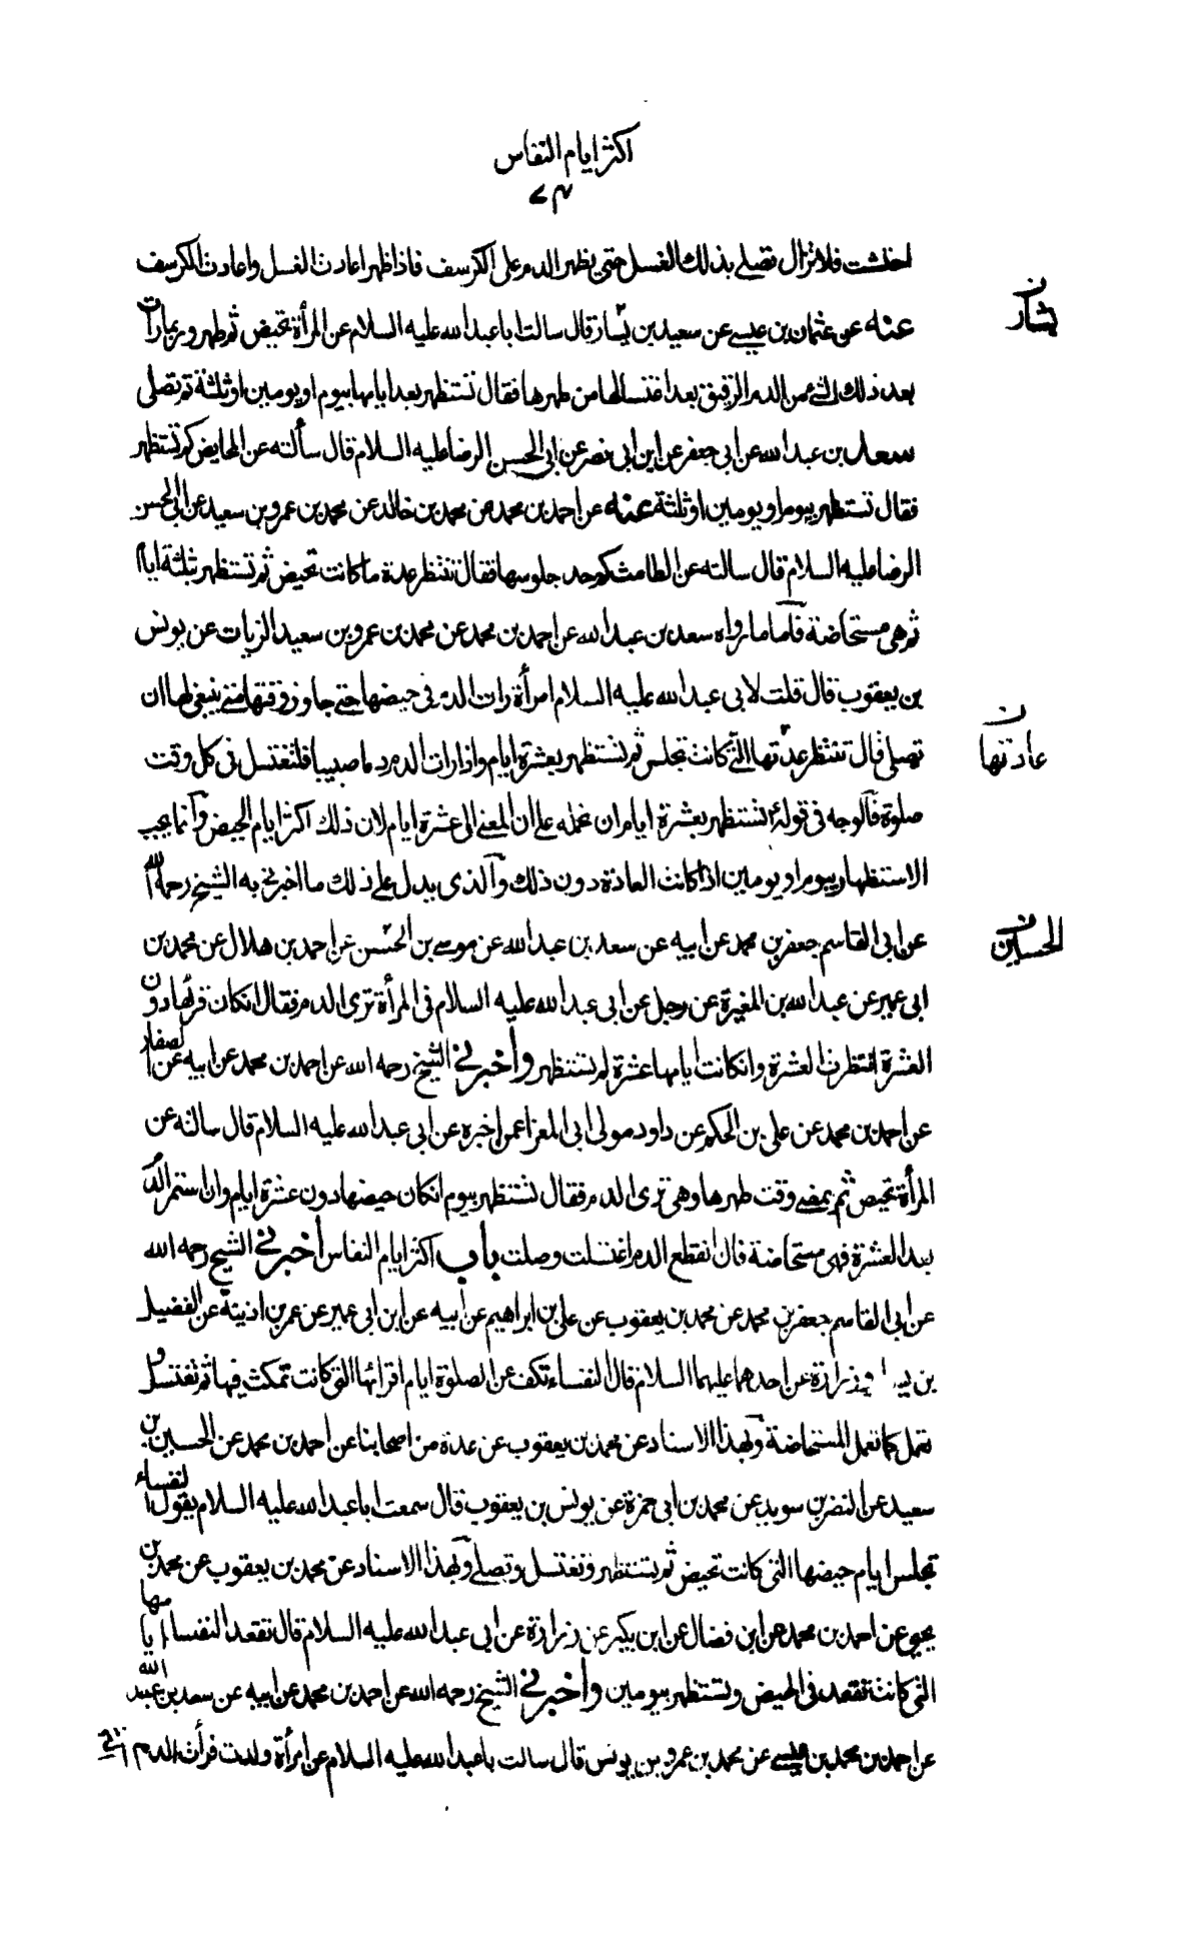 اكثر ايام النفاس
٧٣
احتشت فلا تزال تصلي بذلك الغسل حتى يظهر الدم على الكرسف فاذا ظهر اعادت الغسل واعادت الكرسف
عنه عن عثمان بن عيسى عن سعيد بن يسار قال سالت ابا عبد الله عليه السلام عن المرأة تحيض ثم تطهر وربما رات
بشار ن
بعد ذلك الشئ من الدم الرقيق بعد اغتسالها من طهرها فقال تستظهر بعد ايامها بيوم او يومين او ثلثة ثم تصلى
سعد بن عبد الله عن ابى جعفر عن ابن ابى نصر عن ابى الحسن الرضا عليه السلام قال سألته عن الحايض كم تستظهر
فقال تستظهر بيوم او يومين او ثلثة عنه عن احمد بن محمد عن محمد بن خالد عن محمد بن عمرو بن سعيد عن ابى الحسن
الرضا عليه السلام قال سالته عن الطامث كم حد جلوسها فقال تنتظر عدة ما كانت تحيض ثم تستظهر بثلثة ايام
ثم هى مستحاضة فاما ما رواه سعد بن عبد الله عن احمد بن محمد عن محمد بن عمرو بن سعيد الزيات عن يونس
بن يعقوب قال قلت لابى عبد الله عليه السلام امرأة رات الدم فى حيضها حتى جاوز وقتها متى ينبغى لها ان
تصلى قال تنتظر عدتها التى كانت تجلس ثم تستظهر بعشرة ايام واذا رات الدم دما صبيبا فلتغتسل فى كل وقت
عادتها ن
صلوة فالوجه فى قوله تستظهر بعشرة ايام ان نحمله على ان المعنى الى عشرة ايام لان ذلك اكثر ايام الحيض وانما يجب
الاستظهار بيوم او يومين اذا كانت العادة دون ذلك والذى يدل على ذلك ما اخبرنى به الشيخ رحمه الله
عن ابى القاسم جعفر بن محمد عن ابيه عن سعد بن عبد الله عن موسى بن الحسن عن احمد بن هلال عن محمد بن
الحسين ن
ابى عمير عن عبد الله بن المغيرة عن رجل عن ابى عبد الله عليه السلام فى المرأة ترى الدم فقال ان كان قرئها دون
العشرة انتظرت العشرة وان كانت ايامها عشرة لم تستظهر واخبرنى الشيخ رحمه الله عن احمد بن محمد عن ابيه عن الصفار
عن احمد بن محمد عن على بن الحكم عن داود مولى ابى المعزا عمن اخبره عن ابى عبد الله عليه السلام قال سالته عن
المرأة تحيض ثم يمضى وقت طهرها وهى ترى الدم فقال تستظهر بيوم ان كان حيضها دون عشرة ايام وان استمر الدم
بعد العشرة فهى مستحاضة فان انقطع الدم اغتسلت وصلت باب اكثر ايام النفاس أخبرنى الشيخ رحمه الله
عن ابى القاسم جعفر بن محمد عن محمد بن يعقوب عن على بن ابراهيم عن ابيه عن ابن ابى عمير عن عمر بن اذينة عن الفضيل
بن وزرارة عن احدهما عليهما السلام قال النفساء تكف عن الصلوة ايام اقرائها التى كانت تمكث فيها ثم تغتسل و
تعمل كما تعمل المستحاضة وبهذا الاسناد عن محمد بن يعقوب عن عدة من اصحابنا عن احمد بن محمد عن الحسين بن
سعيد عن النضر بن سويد عن محمد بن ابى حمزة عن يونس بن يعقوب قال سمعت ابا عبد الله عليه السلام يقول النفساء
تجلس ايام حيضها التى كانت تحيض ثم تستظهر وتغتسل وتصلى وبهذا الاسناد عن محمد بن يعقوب عن محمد بن
يحيى عن احمد بن محمد عن ابن فضال عن ابن بكير عن زرارة عن ابى عبد الله عليه السلام قال تقعد النفسا ايامها
التى كانت تقعد فى الحيض وتستظهر بيومين واخبرنى الشيخ رحمه الله عن احمد بن محمد عن ابيه عن سعد بن عبد الله
عن احمد بن محمد بن عيسى عن محمد بن عمرو بن يونس قال سالت با عبد الله عليه السلام عن امرأة ولدت فرأت الدم